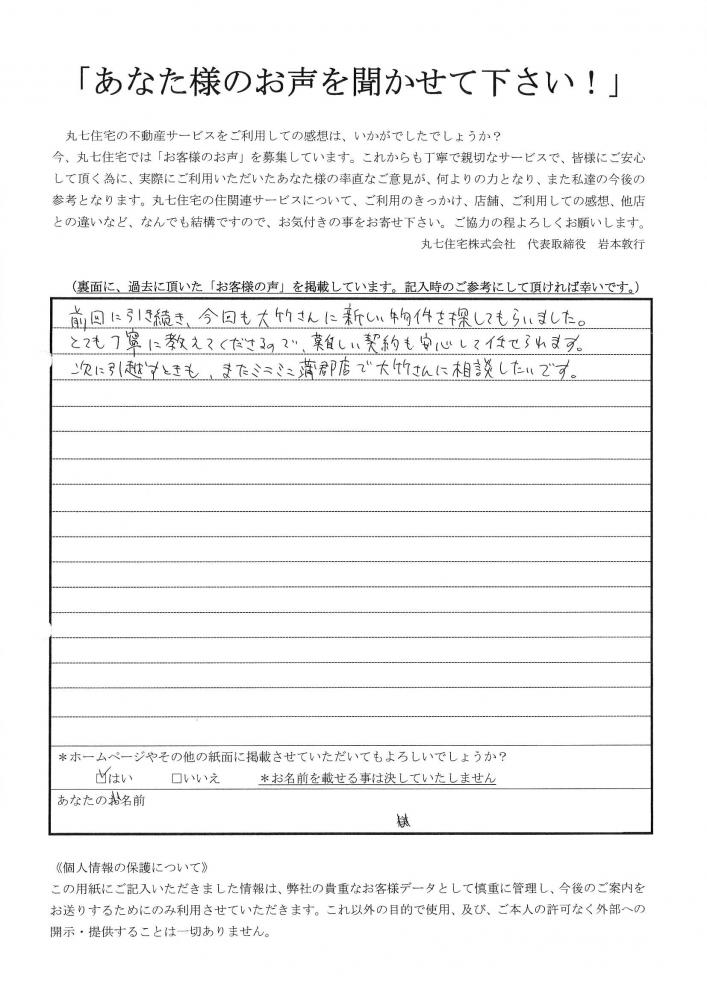 「あなた様のお声を聞かせて下さい！」
丸七住宅の不動産サービスをご利用しての感想は、いかがでしたでしょうか？
今、丸七住宅では「お客様のお声」を募集しています。これからも丁寧で親切なサービスで、皆様にご安心
して頂く為に、実際にご利用いただいたあなた様の率直なご意見が、何よりの力となり、また私達の今後の
参考となります。丸七住宅の住関連サービスについて、ご利用のきっかけ、店舗、ご利用しての感想、他店
との違いなど、なんでも結構ですので、お気付きの事をお寄せ下さい。ご協力の程よろしくお願いします。
丸七住宅株式会社　代表取締役　岩本敦行
（裏面に、過去に頂いた「お客様の声」を掲載しています。記入時のご参考にして頂ければ幸いです。）
前回に引き続き、今回も大竹さんに新しい物件を探してもらいました。
とても丁寧に教えてくださるので、難しい契約も安心して任せられます。
次に引越すときも、またミニミニ蒲郡店で大竹さんに相談したいです。
＊ホームページやその他の紙面に掲載させていただいてもよろしいでしょうか？
☑はい　□いいえ　＊お名前を載せる事は決していたしません
あなたのお名前
様
《個人情報の保護について》
この用紙にご記入いただきました情報は、弊社の貴重なお客様データとして慎重に管理し、今後のご案内を
お送りするためにのみ利用させていただきます。これ以外の目的で使用、及び、ご本人の許可なく外部への
開示・提供することは一切ありません。